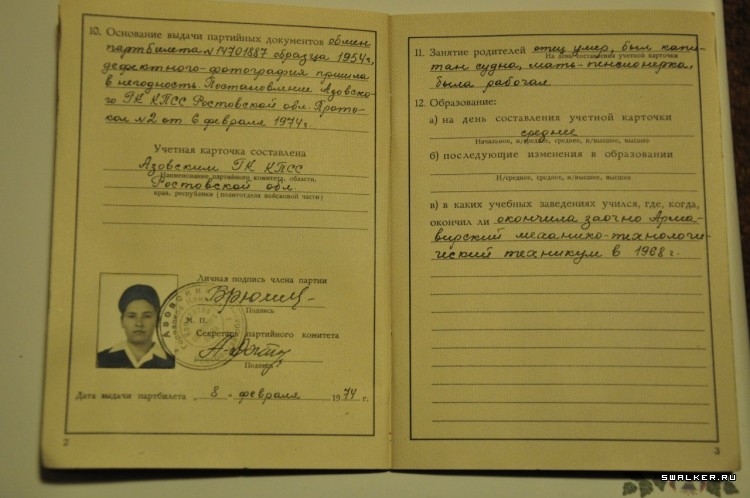 10. Основание выдачи партийных документов обмен
партбилета №14701887 образца 1954г,
дефектного-фотография пришла
в негодность Постановление Азовско-
го ГК КПСС Ростовской обл. Прото-
кол №2 от 6 февраля 1974г.
Учетная карточка составлена
Азовским ГК КПСС
Наименование партийного комитета, области,
Ростовской обл.
края, республики (политотдела войсковой части)
Личная подпись члена партии
Подпись
М. П.
Секретарь партийного комитета
Подпись
Дата выдачи партбилета 8 - февраля 1974 г.
2
11. Занятие родителей отец умер, был капи-
На день составления учетной карточки
тан судна, мать-пенсионерка,
была рабочая
12. Образование:
а) на день составления учетной карточки
среднее
Начальное, н/среднее, среднее, н/высшее, высшее
б) последующие изменения в образовании
Н/среднее, среднее, н/высшее, высшее
в) в каких учебных заведениях учился, где, когда,
окончил ли окончила заочно Арма-
вирский механико-технологи-
ческий техникум в 1968г.
3
SWALKER.RU